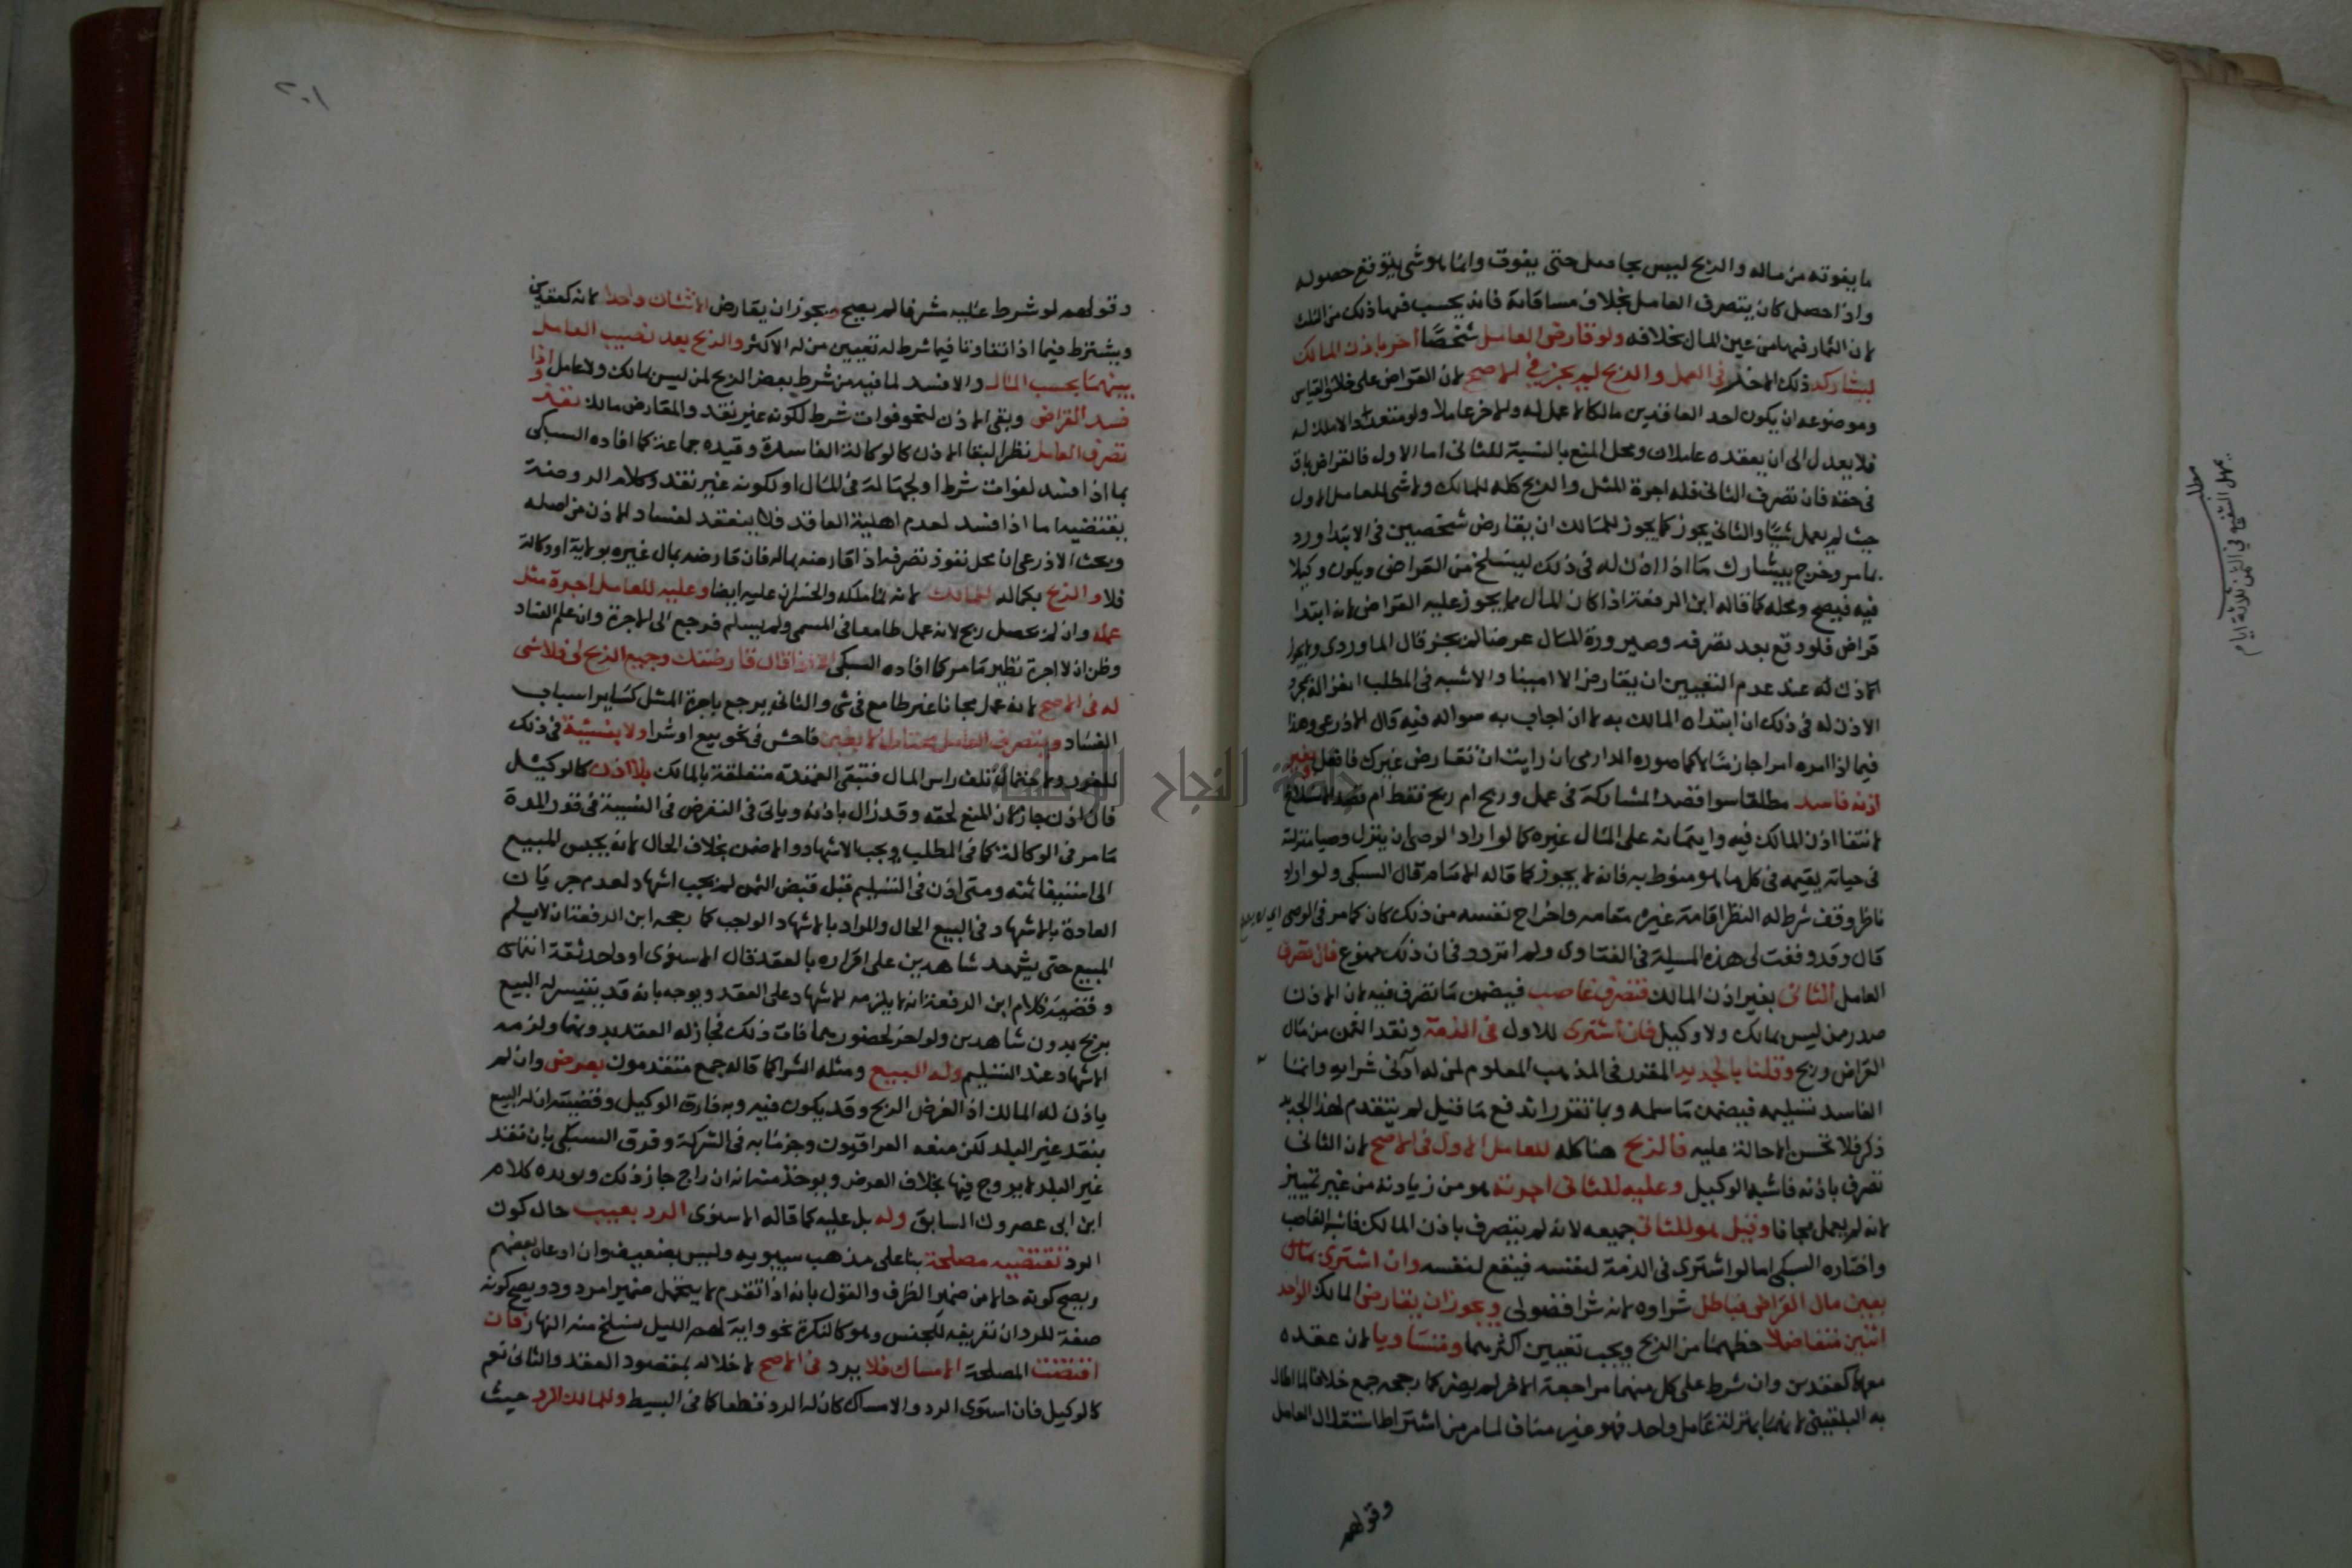 ما يفوته من ماله والربح ليس بحاصل حتى يفوت وانما هو شي يتوقع حصوله
واذا حصل كان بتصرف العامل بخلاف مساقاته فانه يحسب فيها ذلك من الثلث
لان الثمار فيها من عين المال بخلافه ولو قارض العامل شخصا اخر باذن المالك
ليشاركه ذلك الاخر في العمل والربح لم يجز في الاصح لان القراض على خلاف القياس
وموضوعه ان يكون احد العاقدين مالكا لا عمل له والاخر عاملا ولو متعددا لا ملك له
فلا يعدل الى ان يعقده عاملان ومحل المنع بالنسبة للثانى اما الاول فالقراض باق
فى حقه فان تصرف الثانى فله اجرة المثل والربح كله للمالك ولا شى للعامل الاول
حيث لم يعمل شيا والثانى يجوز كما يجوز للمالك ان يقارض شخصين فى الابتدا ورد
بما مر وخرج بيشارك ما اذا اذن له فى ذلك لينسلخ من القراض ويكون وكيلا
فيه فيصح ومحله كما قاله ابن الرفعة اذا كان المال مما يجوز عليه القراض لانه ابتدا
قراض فلو وقع بعد تصرفه وصيرورة المال عرضا لم يجز قال الماوردى ولا يجوز
الاذن له عند عدم التعيين ان يقارض الا امينا والاشبه فى المطلب انعزاله بمجرد
الاذن له فى ذلك ان ابتداه المالك به لا ان اجاب به سواله فيه قال الاذرعى وهذا
فيما اذا امره امرا جازما لا كما صوره الدارمى ان رايت ان تقارض غيرك فافعل وبغير
اذنه فاسد مطلقا سوا قصد المشاركة فى عمل وربح ام ربح فقط ام قصد الانسلاخ
لانتفا اذن المالك فيه وايتمانه على المال غيره كما لو اراد الوصى ان ينزل وصيا منزلته
فى حياته يقيمه فى كل ما هو منوط به فانه لا يجوز كما قاله الامام قال السبكى ولو اراد
ناظر وقف شرط له النظر اقامة غيره مقامه واخراج نفسه من ذلك كان كما مر فى الوصى
قال وقد وقعت لى هذه المسيلة فى الفتاوى ولم اتردد فى ان ذلك ممنوع فان تصرف
العامل الثانى بغير اذن المالك فتصرف غاصب فيضمن ما تصرف فيه لان الاذن
صدر ممن ليس بمالك ولا وكيل فان اشترى للاول فى الذمة ونقد الثمن من مال
القراض وربح وقلنا بالجديد المقرر فى المذهب المعلوم لمن له ادنى شرابه وانما
الفاسد تسليمه فيضمن ما سلمه وبما تقرر اندفع ما قيل لم يتقدم لهذا الجديد
ذكر فلا تحسن الاحالة عليه فالربح هنا كله للعامل الاول فى الاصح لان الثانى
تصرف باذنه فاشبه الوكيل وعليه للثانى اجرته هو من زيادته من غير تمييز
لانه لم يعمل مجانا وقيل هو للثانى جميعه لانه لم يتصرف باذن المالك فاشبه الغاصب
واختاره السبكى اما لو اشترى فى الذمة لنفسه فيقع لنفسه وان اشترى بمال
بعين مال القراض فباطل شراوه لانه شرا فضولى ويجوز ان يقارض المالك الواحد
اثنين متفاضلا حظهما من الربح ويجب تعيين اكثرهما ومتساويا لان عقده
معهما كعقدين وان شرط على كل منهما مراجعة الاخر لم يضر كما رجحه جمع خلافا لما اطال
به البلقينى لانهما بمنزلة عامل واحد فهو غير مناف لما مر من اشتراط استقلال العامل
وقولهم
مطلب
يمهل الشفيع في الثمن ثلاثة ايام
٢٠١
وقولهم لو شرط عليه مشرفا لم يصح ويجوز ان يقارض الاثنان واحدا لانه كعقدين
ويشترط فيما اذا تفاوتا فيما شرط له تعيين من له الاكثر والربح بعد نصيب العامل
بينهما بحسب المال والا فسد لما فيه من شرط بعض الربح لمن ليس بمالك ولا عامل واذا
فسد القراض وبقى الاذن لنحو فوات شرط لكونه غير نقد والمقارض مالك نفذ
تصرف العامل نظرا لبقا الاذن كالوكالة الفاسدة وقيده جماعة كما افاده السبكى
بما اذا فسد لفوات شرط او لجهالة فى المال او لكونه غير نقد وكلام الروضة
يقتضيه اما اذا فسد لعدم اهلية العاقد فلا ينعقد لفساد الاذن من اصله
وبحث الاذرعى ان محل نفوذ تصرفه اذا قارضه بماله فان قارضه بمال غيره بولاية او وكالة
فلا والربح بكماله للمالك لانه نما ملكه والخسران عليه ايضا وعليه للعامل اجرة مثل
عمله وان لم يحصل ربح لانه عمل طامعا فى المسمى ولم يسلم فرجع الى الاجرة وان علم الفساد
وظن ان لا اجرة نظير ما مر كما افاده السبكى الا اذا قال قارضتك وجميع الربح لى فلا شى
له فى الاصح لانه عمل مجانا غير طامع فى شى والثانى يرجع باجرة المثل كساير اسباب
الفساد ويتصرف العامل محتاطا لا بغبن فاحش فى نحو بيع او شرا ولا بنسيئة فى ذلك
للغرر ولاحتمال تلف راس المال فتبقى العهدة متعلقة بالمالك بلا اذن كالوكيل
فان اذن جاز لان المنع لحقه وقد زال باذنه وياتى فى التعرض فى النسيئة فى قدر المدة
ما مر فى الوكالة كما فى المطلب ويجب الاشهاد والا ضمن بخلاف الحال لانه يحبس المبيع
الى استيفا ثمنه ومتى اذن فى التسليم قبل قبض الثمن لم يجب اشهاد لعدم جريان
العادة بالاشهاد فى البيع الحال والمراد بالاشهاد الواجب كما رجحه ابن الرفعة ان لا يسلم
المبيع حتى يشهد شاهدين على اقراره بالعقد قال الاسنوى او واحد ثقة انتهى
وقضية كلام ابن الرفعة انه لا يلزمه الاشهاد على العقد ويوجه بانه قد يتيسر له البيع
بربح بدون شاهدين ولو اخر لحضورهما فات ذلك فجاز له العقد بدونهما ولزمه
الاشهاد عند التسليم وله البيع ومثله الشرا كما قاله جمع متقدمون بعرض وان لم
ياذن له المالك اذ الغرض الربح وقد يكون فيه وبه فارق الوكيل وقضيته ان له البيع
بنقد غير البلد لكن منعه العراقيون وجزما به فى الشركة وفرق السبكى بان نقد
غير البلد لا يروج فيها بخلاف العرض ويوخذ منه انه ان راج جاز ذلك ويويده كلام
ابن ابى عصرون السابق وله بل عليه كما قاله الاسنوى الرد بعيب حال كون
الرد تقتضيه مصلحة بنا على مذهب سيبويه وليس بضعيف وان ادعاه بعضهم
ويصح كونه حالا من ضمير الظرف والقول بانه اذا تقدم لا يتحمل ضميرا مردود ويصح كونه
صفة للرد ان تعريفه للجنس وهو كالنكرة نحو واية لهم الليل نسلخ منه النهار فان
اقتضت المصلحة الامساك فلا يرد فى الاصح لاخلاله بمقصود العقد والثانى نعم
كالوكيل فان استوى الرد والامساك كان له الرد قطعا كما فى البسيط وللمالك الرد حيث
جامعة النجاح الوطنية